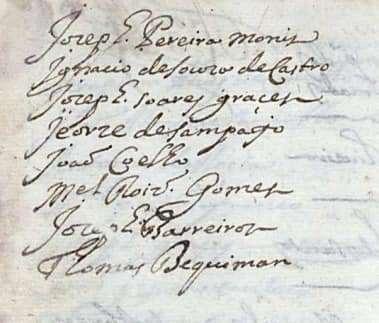 Joseph. Pereira monis
Ignacio de souza de Castro
Joseph. soares graçes
Jeorze de sampayo
João Coelho
Mel Roiz. Gomes
Joseph Barreiros
Thomas Bequiman